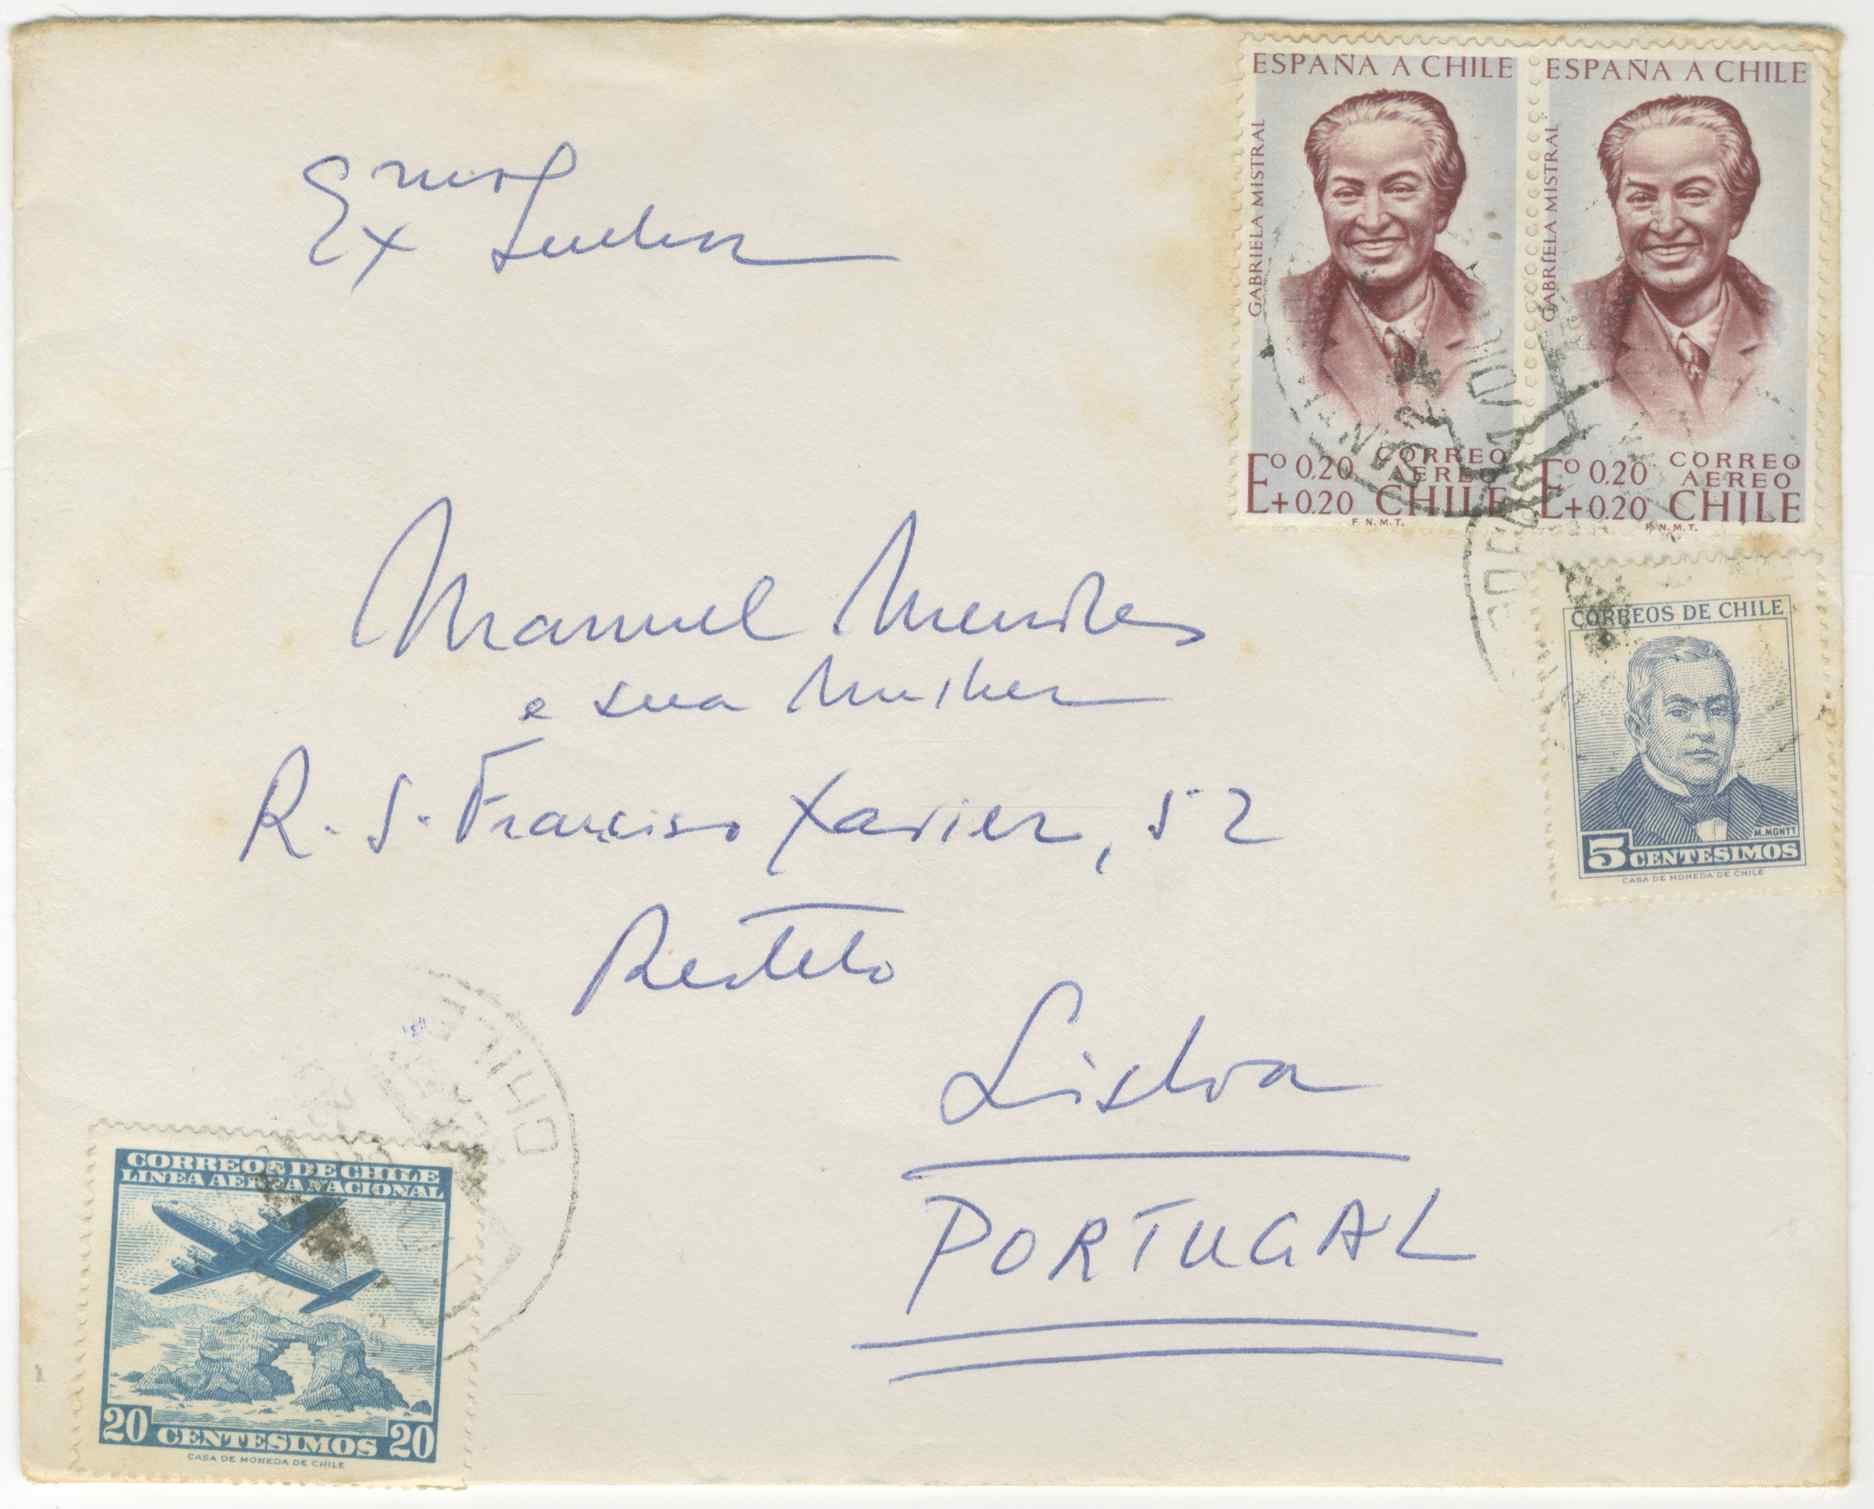 ESPAÑA A CHILE
GABRIELA MISTRAL
Eº 0.20
+0.20
CORREO
AEREO
CHILE
F.N.M.T.
ESPAÑA A CHILE
GABRIELA MISTRAL
Eº 0.20
+0.20
CORREO
AEREO
CHILE
F.N.M.T.
CORREOS DE CHILE
M. MONTT
5 CENTESIMOS
CASA DE MONEDA DE CHILE
Manuel Mendes
e sua Mulher
R. S. Francisco Xavier, 52
Restelo
Lisboa
PORTUGAL
CHILE
CORREOS DE CHILE
LINEA AEREA NACIONAL
20 CENTESIMOS 20
CASA DE MONEDA DE CHILE